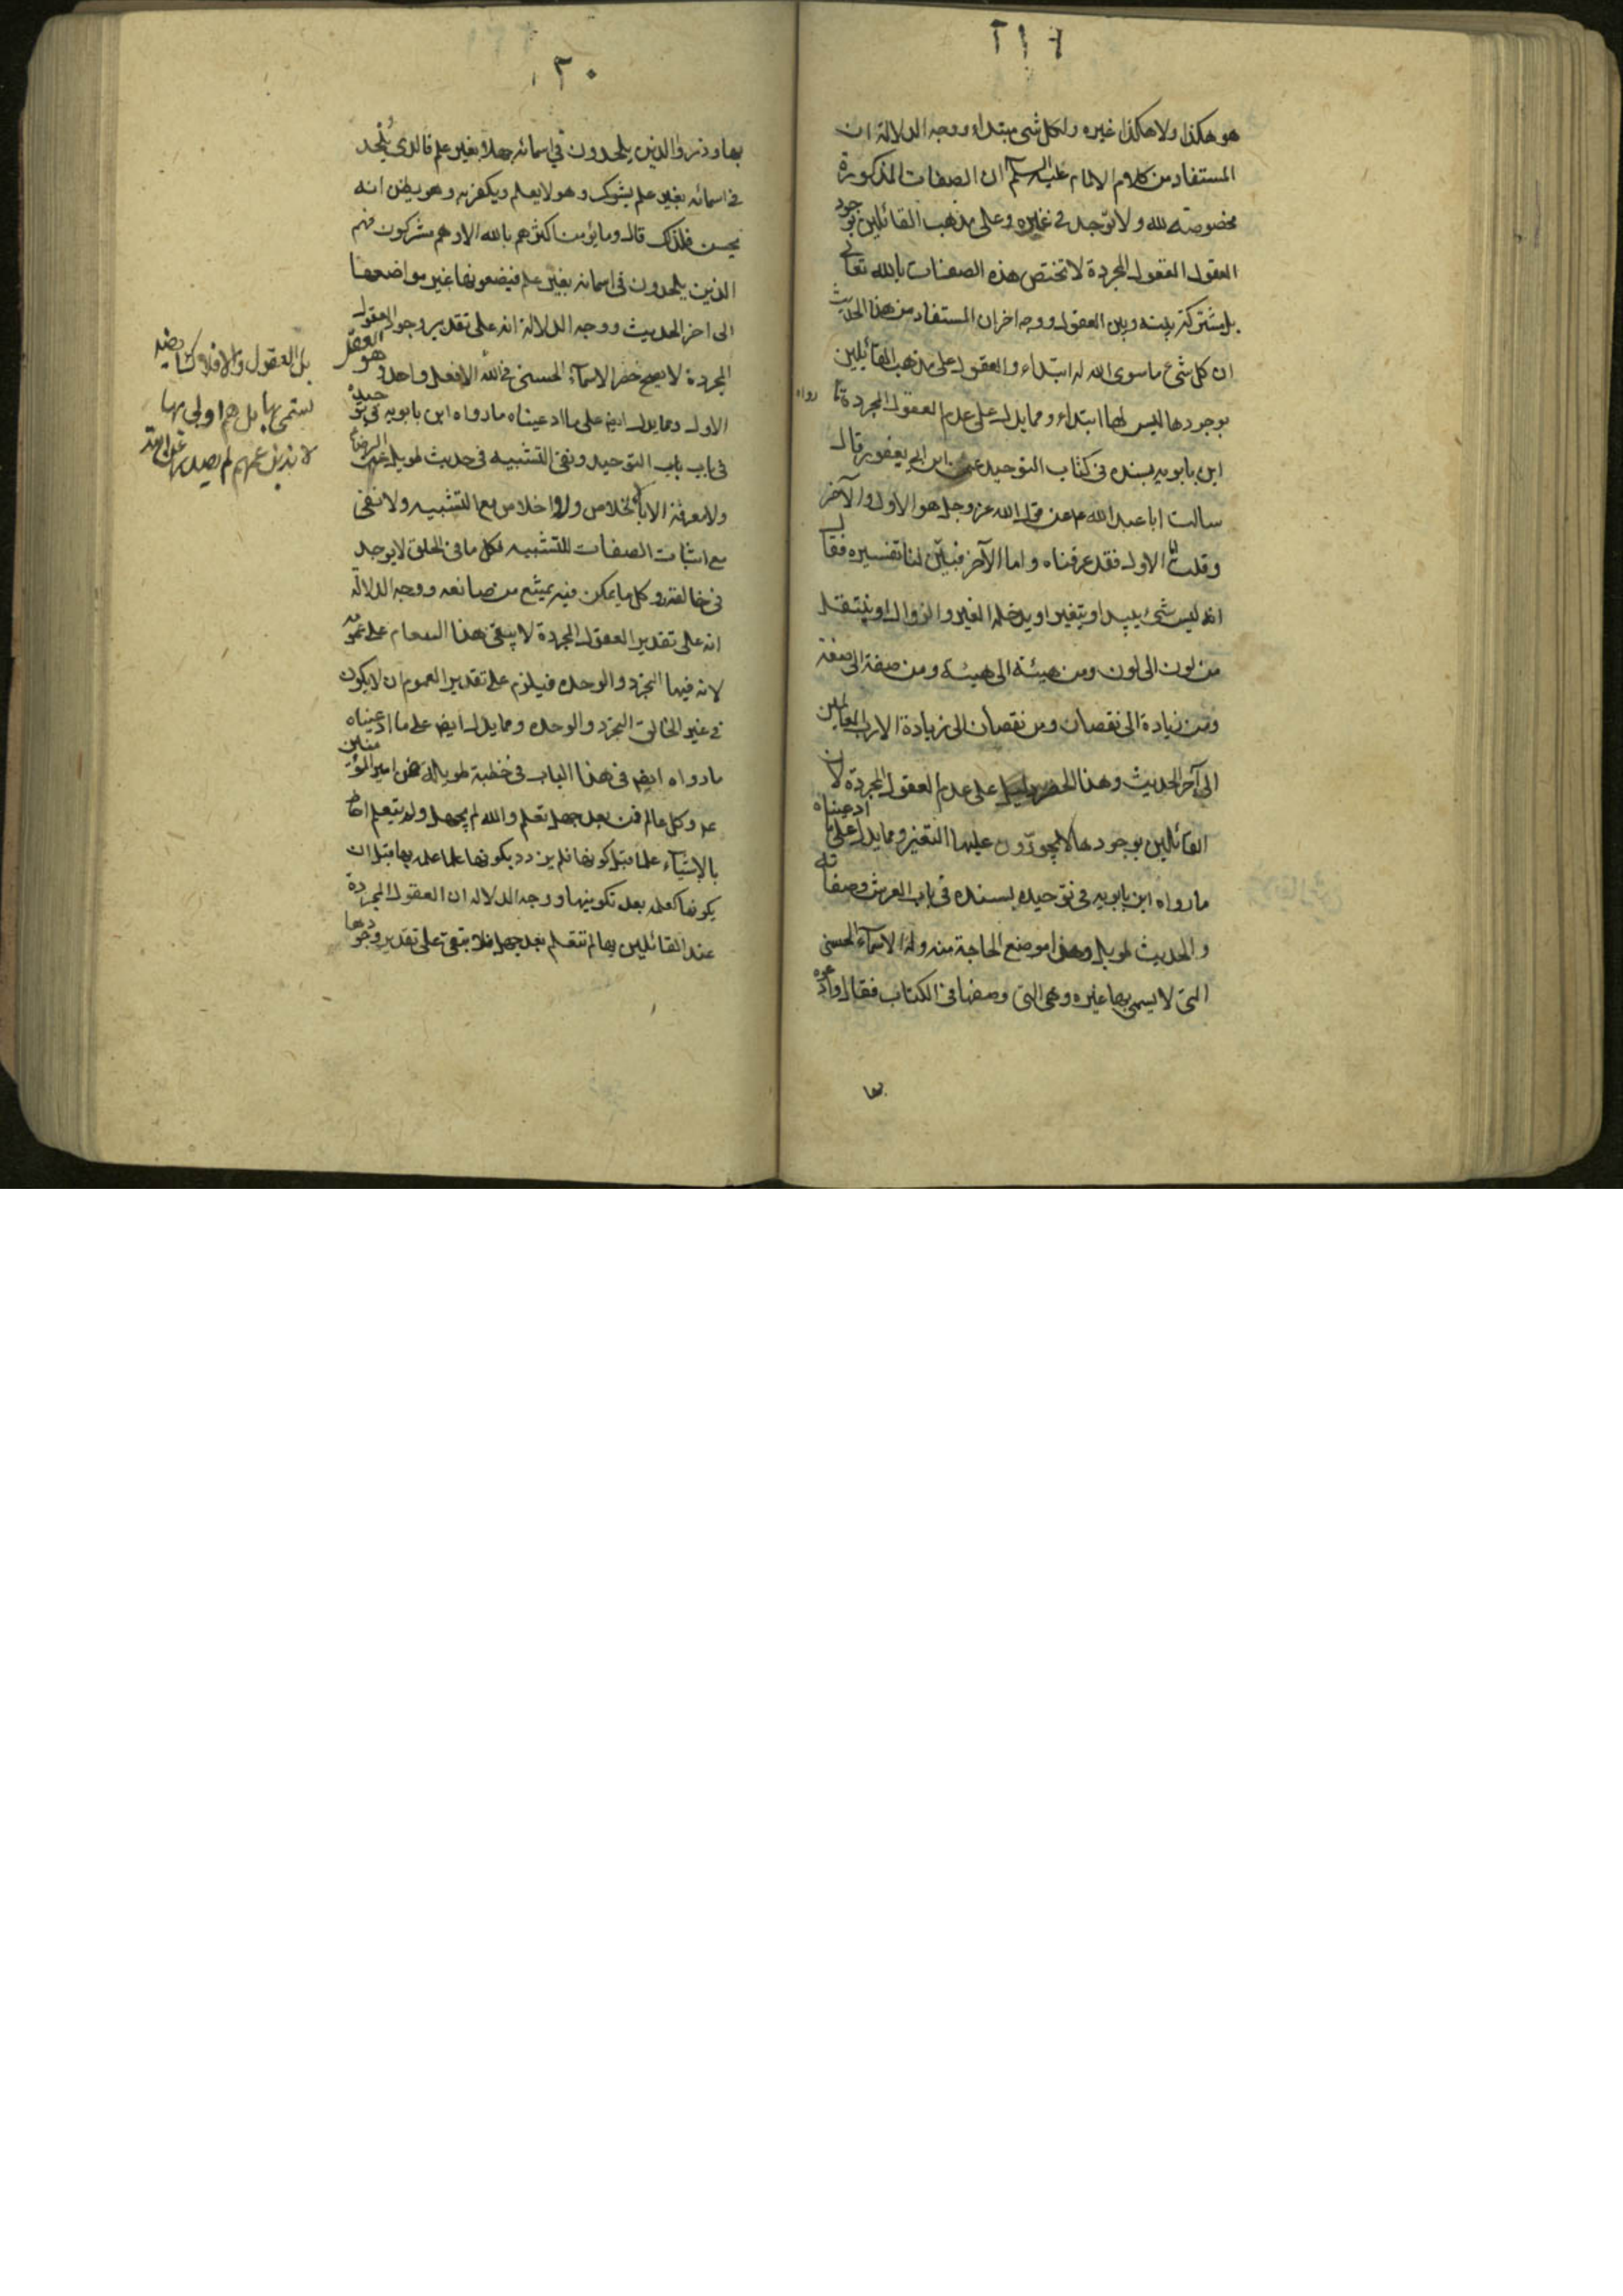 ٢١٩
هو هكذا ولا هكذا غيره ولكل شئ مبتداء ووجه الدلالة ان
المستفاد من كلام الامام عليه السلم ان الصفات المذكورة
مخصوصة لله ولا توجد في غيره وعلى مذهب القائلين بوجود
العقول العقول المجردة لا تختص هذه الصفات بالله تعالى
بل مشتركة بينه وبين العقول ووجه اخر ان المستفاد من هذا الحديث
ان كل شئ ما سوى الله له ابتداء والعقول على مذهب القائلين
بوجودها ليس لها ابتداء ومما يدل على عدم العقول المجردة ما رواه
ابن بابويه بسنده في كتاب التوحيد عن ابن ابي يعفور قال
سالت ابا عبد الله ع عن قول الله عز وجل هو الاول والآخر
وقلت اما الاول فقد عرفناه واما الآخر فبين لنا تفسيره فقال
انه ليس شئ يبيد او يتغير او يدخله الغير والزوال او ينتقل
من لون الى لون ومن هيئة الى هيئة ومن صفة الى صفة
ومن زيادة الى نقصان ومن نقصان الى زيادة الا رب العالمين
الى آخر الحديث وهذا على عدم العقول المجردة لان
القائلين بوجودها لا يجوزون عليها التغير ومما يدل على ما ادعيناه
ما رواه ابن بابويه في توحيده بسنده في باب العرش وصفاته
والحديث طويل وهذا موضع الحاجة منه وله الاسماء الحسنى
التي لا يسمى بها غيره وهي التي وصفها في الكتاب فقال فادعوه
بها
٢٠
بها وذروا الذين يلحدون في اسمائه جهلا بغير علم فالذي يلحد
في اسمائه بغير علم يشرك وهو لا يعلم ويكفر به وهو يظن انه
يحسن فلذلك قال وما يؤمن اكثرهم بالله الا وهم مشركون فهم
الذين يلحدون في اسمائه بغير علم فيضعونها غير مواضعها
الى اخر الحديث ووجه الدلالة انه على تقدير وجود العقول
المجردة لا يصح حصر الاسماء الحسنى في الله الا فعل واحد وهو العقل
الاول ومما يدل ايض على ما ادعيناه ما رواه ابن بابويه في توحيده
في باب باب التوحيد ونفي التشبيه في حديث طويل عن الرضا
ولا معرفة الا بالاخلاص ولا اخلاص مع التشبيه ولا نفي
مع اثبات الصفات للتشبيه فكل ما في الخلق لا يوجد
في خالقه وكل ما يمكن فيه يمتنع من صانعه ووجه الدلالة
انه على تقدير العقول المجردة لا يبقى هذا العام على عمومه
لانه فيها التجرد والوحدة فيلزم على تقدير العموم ان لا يكون
في غير الخالق التجرد والوحدة ومما يدل ايض على ما ادعيناه
ما رواه ايض في هذا الباب في خطبة طويلة عن امير المؤمنين
ع وكل عالم فمن بعد جهل تعلم والله لم يجهل ولم يتعلم احاط
بالاشياء علما قبل كونها فلم يزدد بكونها علما علمه بها قبل ان
يكونها كعلمه بعد تكوينها ووجه الدلالة ان العقول المجردة
عند القائلين بها لم تتعلم بعد جهل فلا يبقى على تقدير وجودها
بل العقول والافلاك ايضه
تسمى بها بل هم اولى بها
لا بذعمهم لم يصدر عن الله